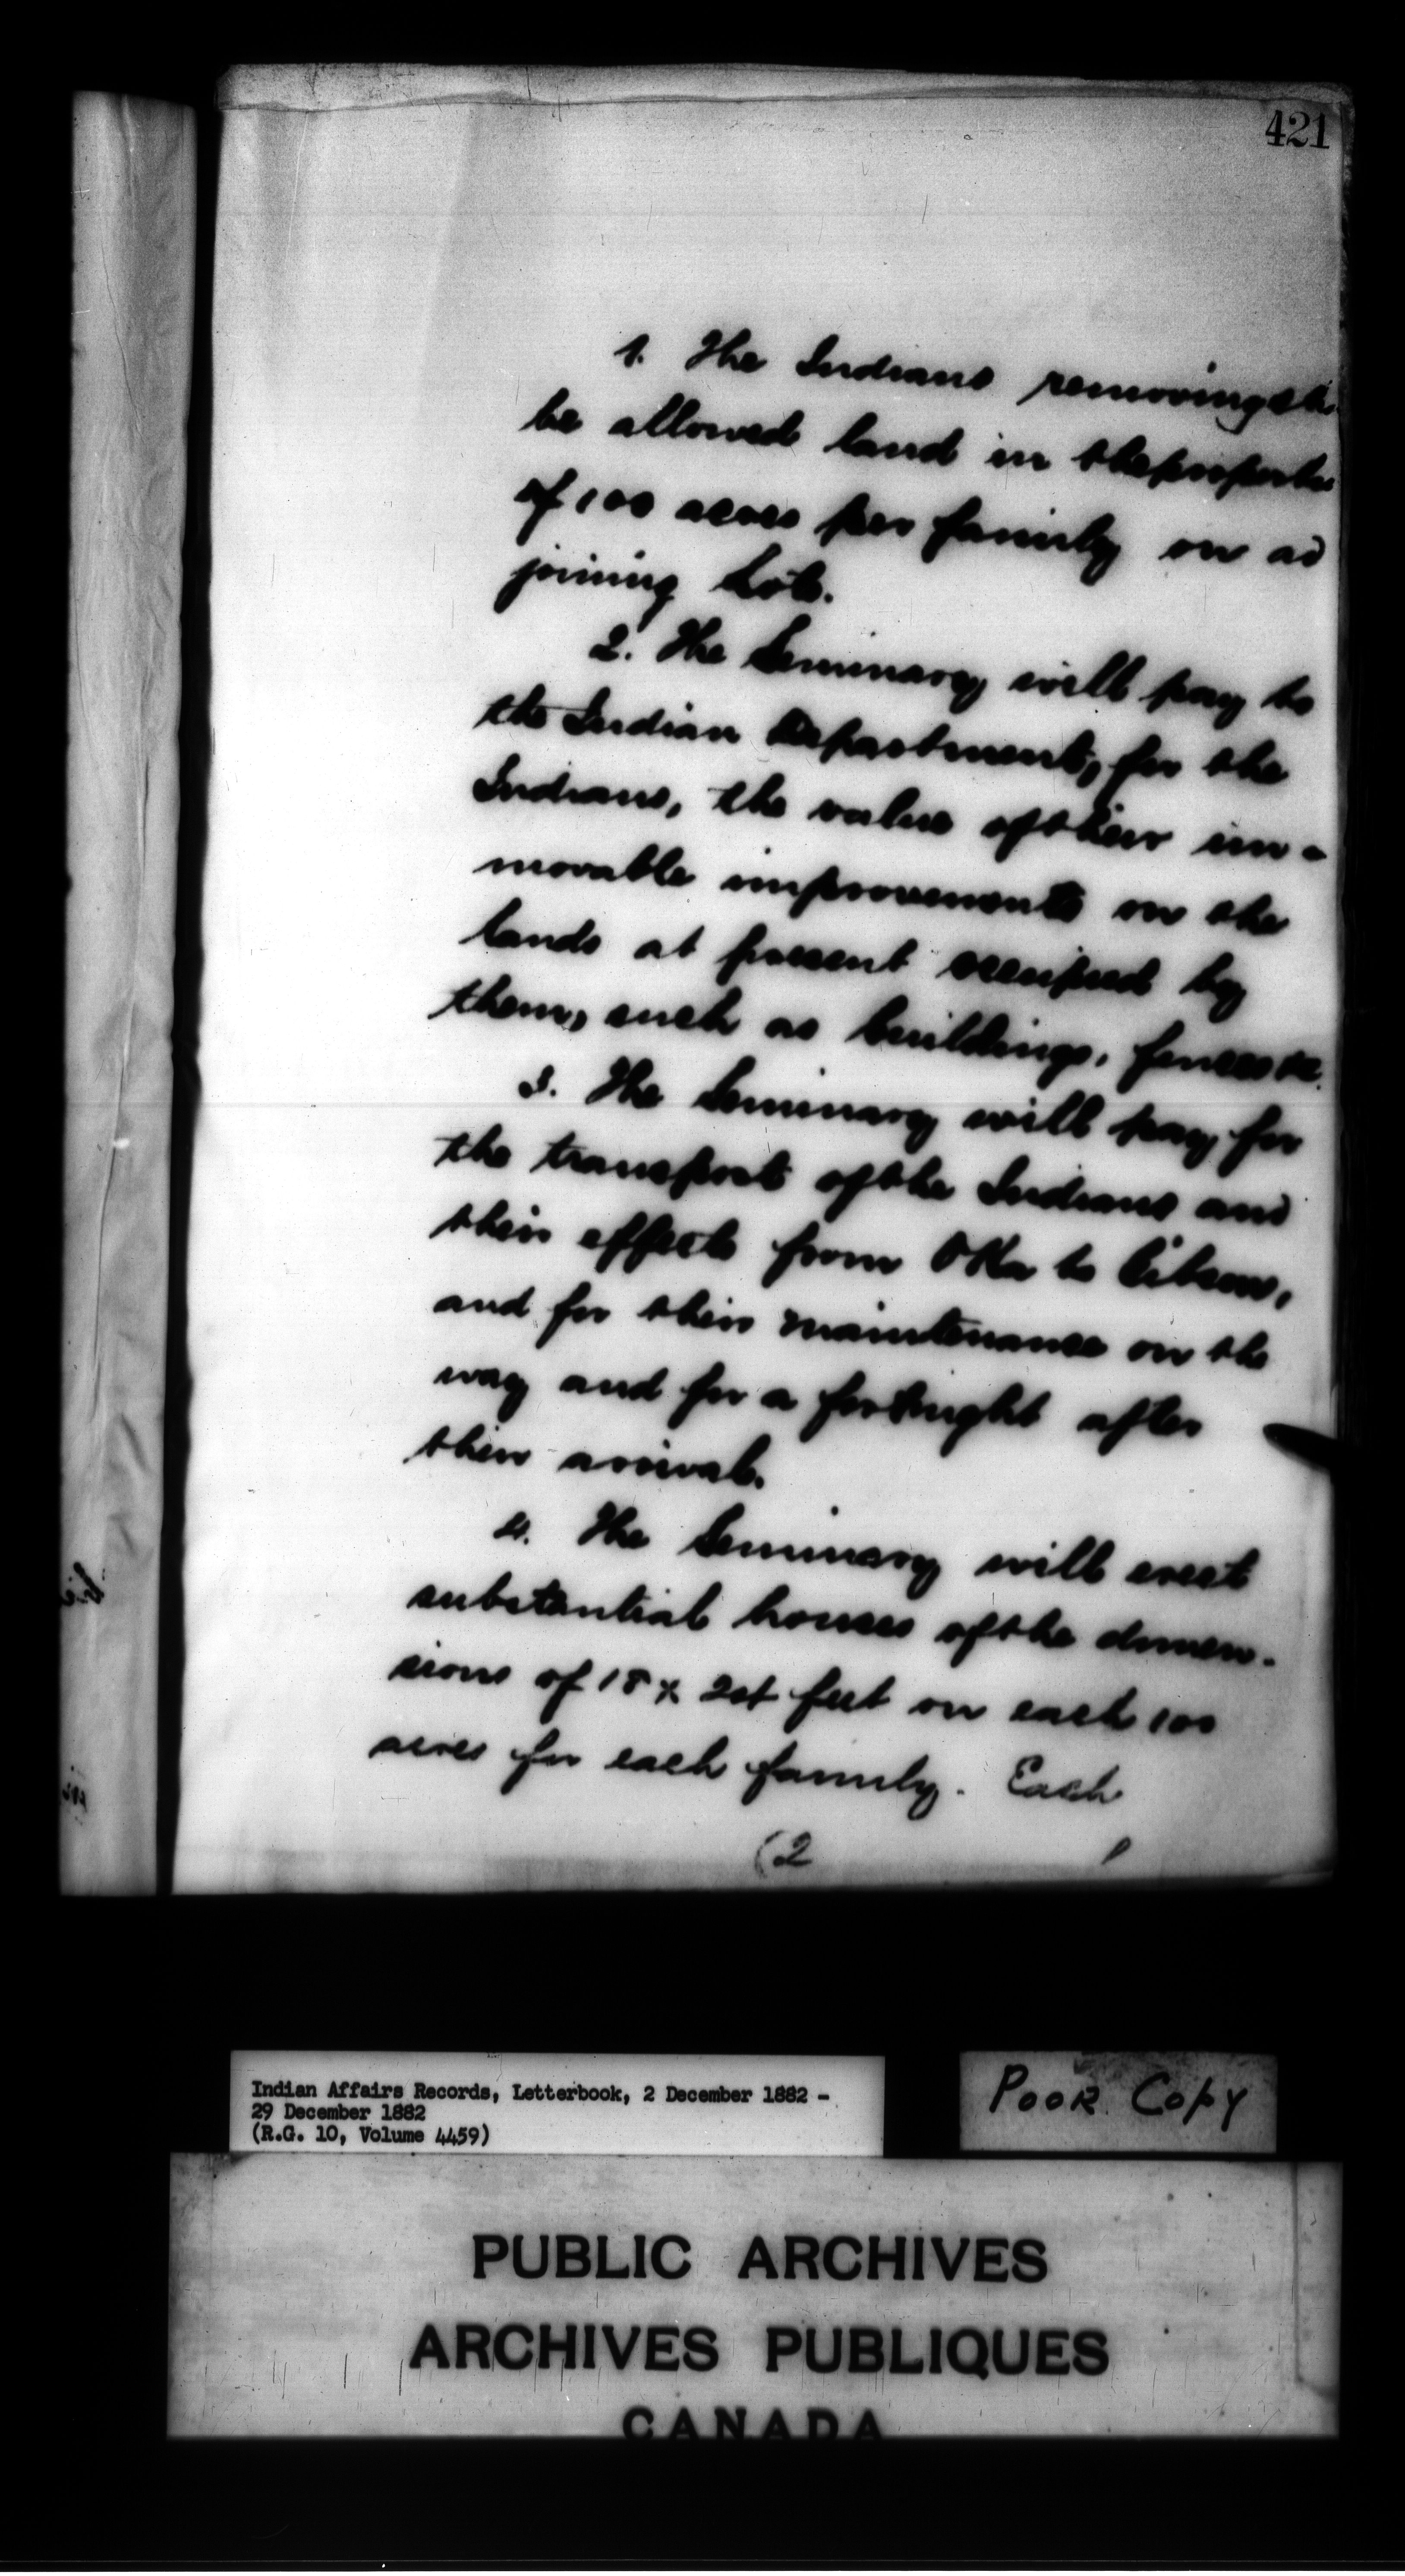 421
1. The Indians removing sh
be allowed land in the proporti
of 100 acres per family on ad
joining Lots.
2. The Seminary will pay to
the Indian Department, for the
Indians, the value of their im-
movable improvements on the
lands at present occupied by
them, such as buildings, fences &c.
3. The Seminary will pay for
the transport of the Indians and
their effects from Oka to Gibson,
and for their maintenance on the
way and for a fortnight after
their arrival.
4. The Seminary will erect
substantial houses of the dimen-
sions of 18 x 24 feet on each 100
acres for each family. Each
(2
Indian Affairs Records, Letterbook, 2 December 1882 -
29 December 1882
(R.G. 10, Volume 4459)
Poor Copy
PUBLIC ARCHIVES
ARCHIVES PUBLIQUES
CANADA